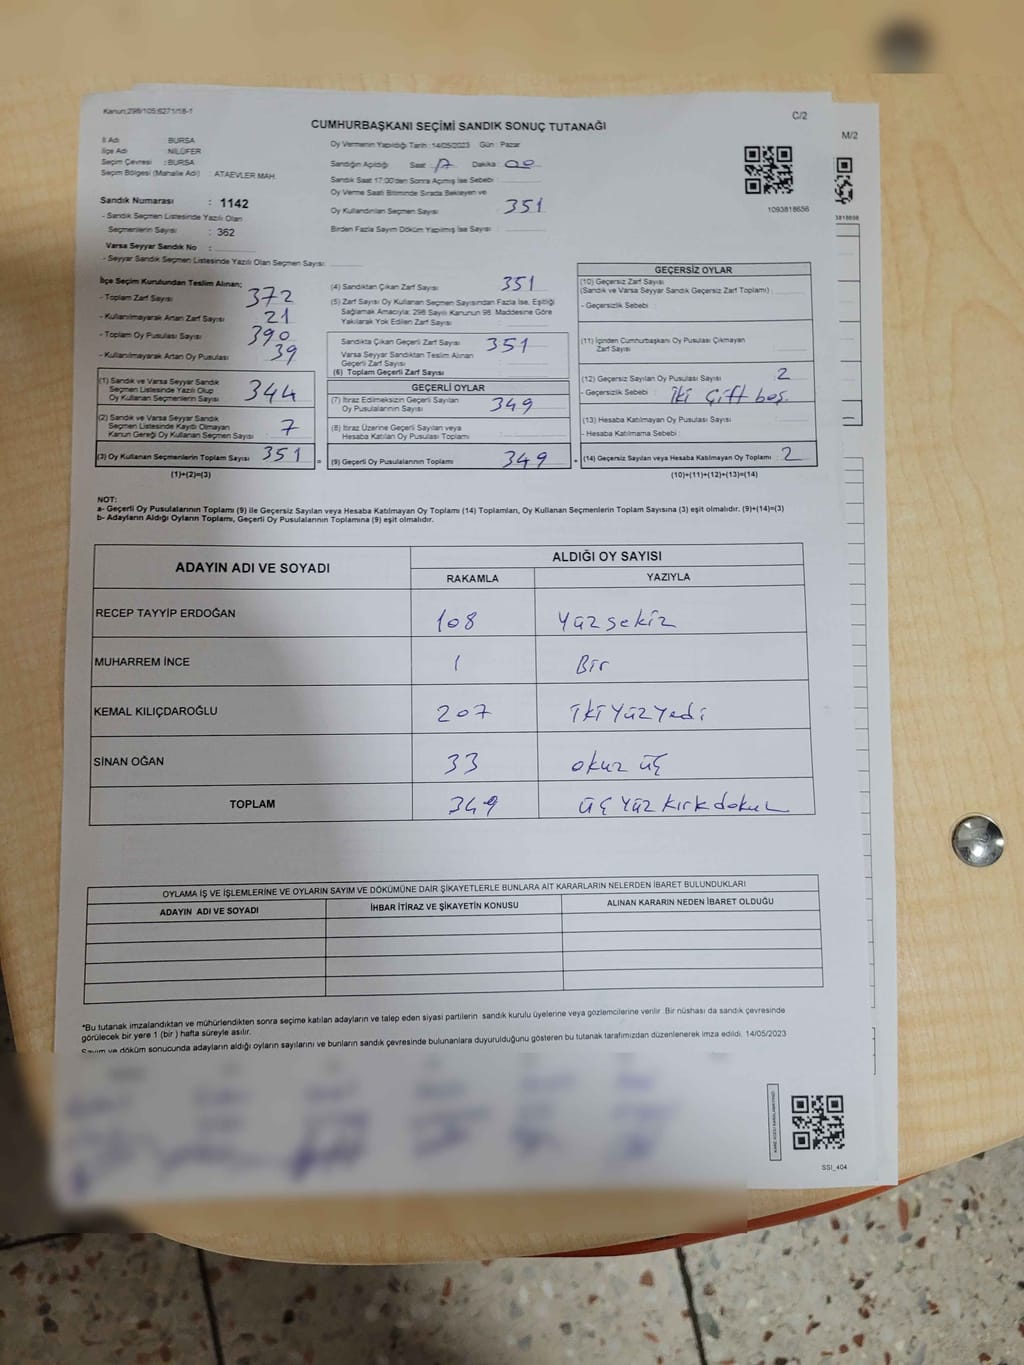 Kanun;298/105;6271/18-1
C/2
CUMHURBAŞKANI SEÇİMİ SANDIK SONUÇ TUTANAĞI
M/2
İl Adı : BURSA
İlçe Adı : NİLÜFER
Seçim Çevresi : BURSA
Seçim Bölgesi (Mahalle Adı) : ATAEVLER MAH.
Oy Vermenin Yapıldığı Tarih : 14/05/2023 Gün : Pazar
Sandığın Açıldığı Saat : 17 Dakika : 00
Sandık Saat 17:00'den Sonra Açılmış İse Sebebi :
Oy Verme Saati Bitiminde Sırada Bekleyen ve
Oy Kullandırılan Seçmen Sayısı 351
Birden Fazla Sayım Döküm Yapılmış İse Sayısı :
1093818656
Sandık Numarası : 1142
- Sandık Seçmen Listesinde Yazılı Olan
Seçmenlerin Sayısı : 362
Varsa Seyyar Sandık No :
- Seyyar Sandık Seçmen Listesinde Yazılı Olan Seçmen Sayısı :
İlçe Seçim Kurulundan Teslim Alınan;
- Toplam Zarf Sayısı 372
- Kullanılmayarak Artan Zarf Sayısı : 21
- Toplam Oy Pusulası Sayısı 390
- Kullanılmayarak Artan Oy Pusulası 39
(1) Sandık ve Varsa Seyyar Sandık
Seçmen Listesinde Yazılı Olup
Oy Kullanan Seçmenlerin Sayısı 344
(2) Sandık ve Varsa Seyyar Sandık
Seçmen Listesinde Kaydı Olmayan
Kanun Gereği Oy Kullanan Seçmen Sayısı : 7
(3) Oy Kullanan Seçmenlerin Toplam Sayısı 351 =
(1)+(2)=(3)
(4) Sandıktan Çıkan Zarf Sayısı 351
(5) Zarf Sayısı Oy Kullanan Seçmen Sayısından Fazla İse, Eşitliği
Sağlamak Amacıyla; 298 Sayılı Kanunun 98. Maddesine Göre
Yakılarak Yok Edilen Zarf Sayısı :
Sandıkta Çıkan Geçerli Zarf Sayısı 351
Varsa Seyyar Sandıktan Teslim Alınan
Geçerli Zarf Sayısı :
(6) Toplam Geçerli Zarf Sayısı
GEÇERLİ OYLAR
(7) İtiraz Edilmeksizin Geçerli Sayılan
Oy Pusulalarının Sayısı 349
(8) İtiraz Üzerine Geçerli Sayılan veya
Hesaba Katılan Oy Pusulası Toplamı
(9) Geçerli Oy Pusulalarının Toplamı 349 +
GEÇERSİZ OYLAR
(10) Geçersiz Zarf Sayısı
(Sandık ve Varsa Seyyar Sandık Geçersiz Zarf Toplamı) :
- Geçersizlik Sebebi :
(11) İçinden Cumhurbaşkanı Oy Pusulası Çıkmayan
Zarf Sayısı
(12) Geçersiz Sayılan Oy Pusulası Sayısı : 2
- Geçersizlik Sebebi : iki çift boş
(13) Hesaba Katılmayan Oy Pusulası Sayısı :
- Hesaba Katılmama Sebebi :
(14) Geçersiz Sayılan veya Hesaba Katılmayan Oy Toplamı : 2
(10)+(11)+(12)+(13)=(14)
NOT:
a- Geçerli Oy Pusulalarının Toplamı (9) ile Geçersiz Sayılan veya Hesaba Katılmayan Oy Toplamı (14) Toplamları, Oy Kullanan Seçmenlerin Toplam Sayısına (3) eşit olmalıdır. (9)+(14)=(3)
b- Adayların Aldığı Oyların Toplamı, Geçerli Oy Pusulalarının Toplamına (9) eşit olmalıdır.
ADAYIN ADI VE SOYADI ALDIĞI OY SAYISI
RAKAMLA YAZIYLA
RECEP TAYYİP ERDOĞAN 108 Yüz sekiz
MUHARREM İNCE 1 Bir
KEMAL KILIÇDAROĞLU 207 iki Yüz Yedi
SİNAN OĞAN 33 otuz üç
TOPLAM 349 üç Yüz kırk dokuz
OYLAMA İŞ VE İŞLEMLERİNE VE OYLARIN SAYIM VE DÖKÜMÜNE DAİR ŞİKAYETLERLE BUNLARA AİT KARARLARIN NELERDEN İBARET BULUNDUKLARI
ADAYIN ADI VE SOYADI İHBAR İTİRAZ VE ŞİKAYETİN KONUSU ALINAN KARARIN NEDEN İBARET OLDUĞU
*Bu tutanak imzalandıktan ve mühürlendikten sonra seçime katılan adayların ve talep eden siyasi partilerin sandık kurulu üyelerine veya gözlemcilerine verilir. Bir nüshası da sandık çevresinde
görülecek bir yere 1 (bir ) hafta süreyle asılır.
Sayım ve döküm sonucunda adayların aldığı oyların sayılarını ve bunların sandık çevresinde bulunanlara duyurulduğunu gösteren bu tutanak tarafımızdan düzenlenerek imza edildi. 14/05/2023
SSI_404